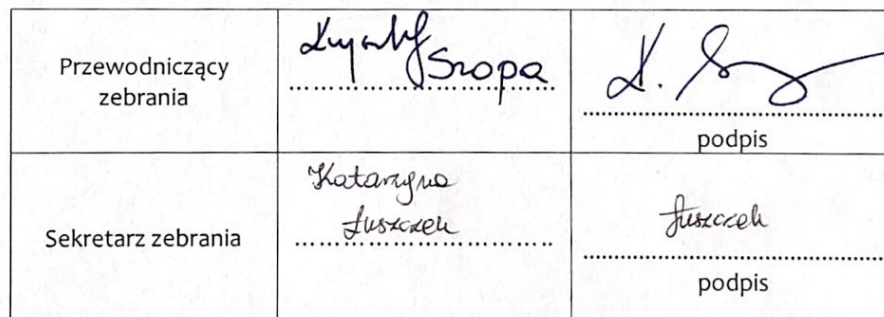 Przewodniczący
zebrania
Szopa
K. 
podpis
Sekretarz zebrania
Katarzyna
Łuszczek
Łuszczek
podpis